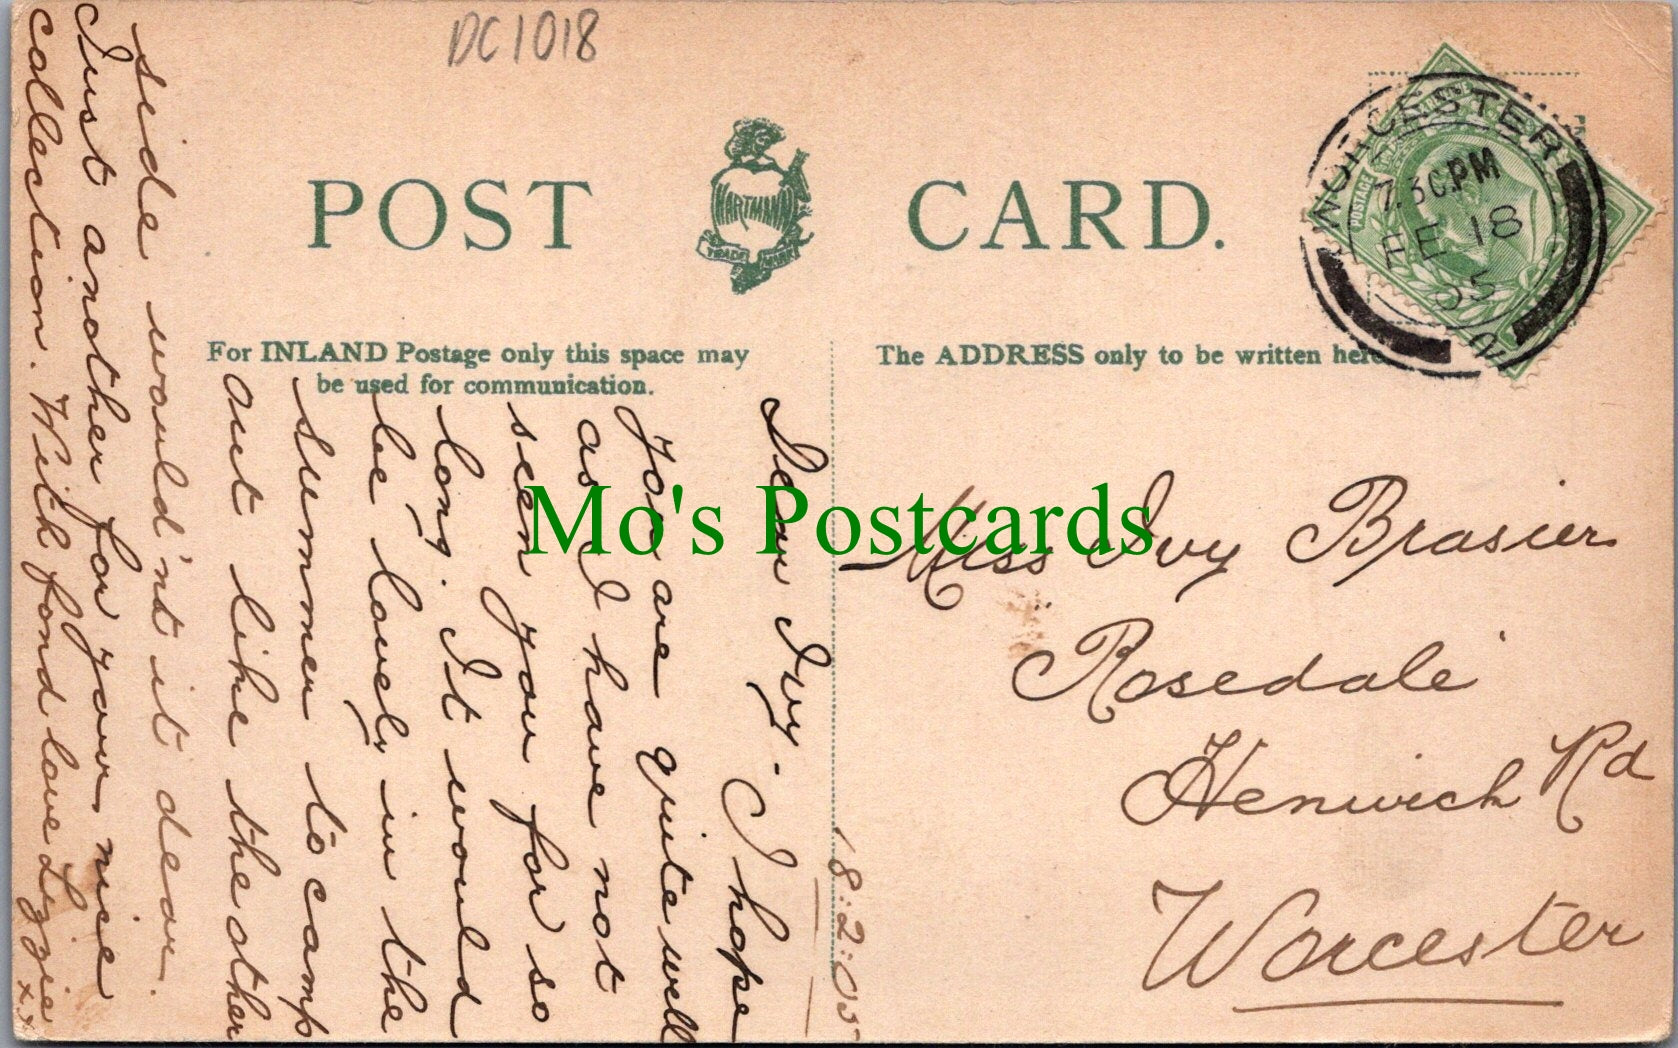 DC1018
POST CARD.
HARTMANN
TRADE MARK
For INLAND Postage only this space may
be used for communication.
The ADDRESS only to be written here
WORCESTER
7.30PM
FE 18
05
POSTAGE
Mo's Postcards
Miss Ivy Brasier
Rosedale
Henwick Rd
Worcester
18:2:05
Dear Ivy. I hope
you are quite well
as I have not
seen you for so
long. It would
be lovely in the
summer to camp
out like the other
side would'nt it dear.
Just another for your nice
collection. With fond love Lizzie
x x